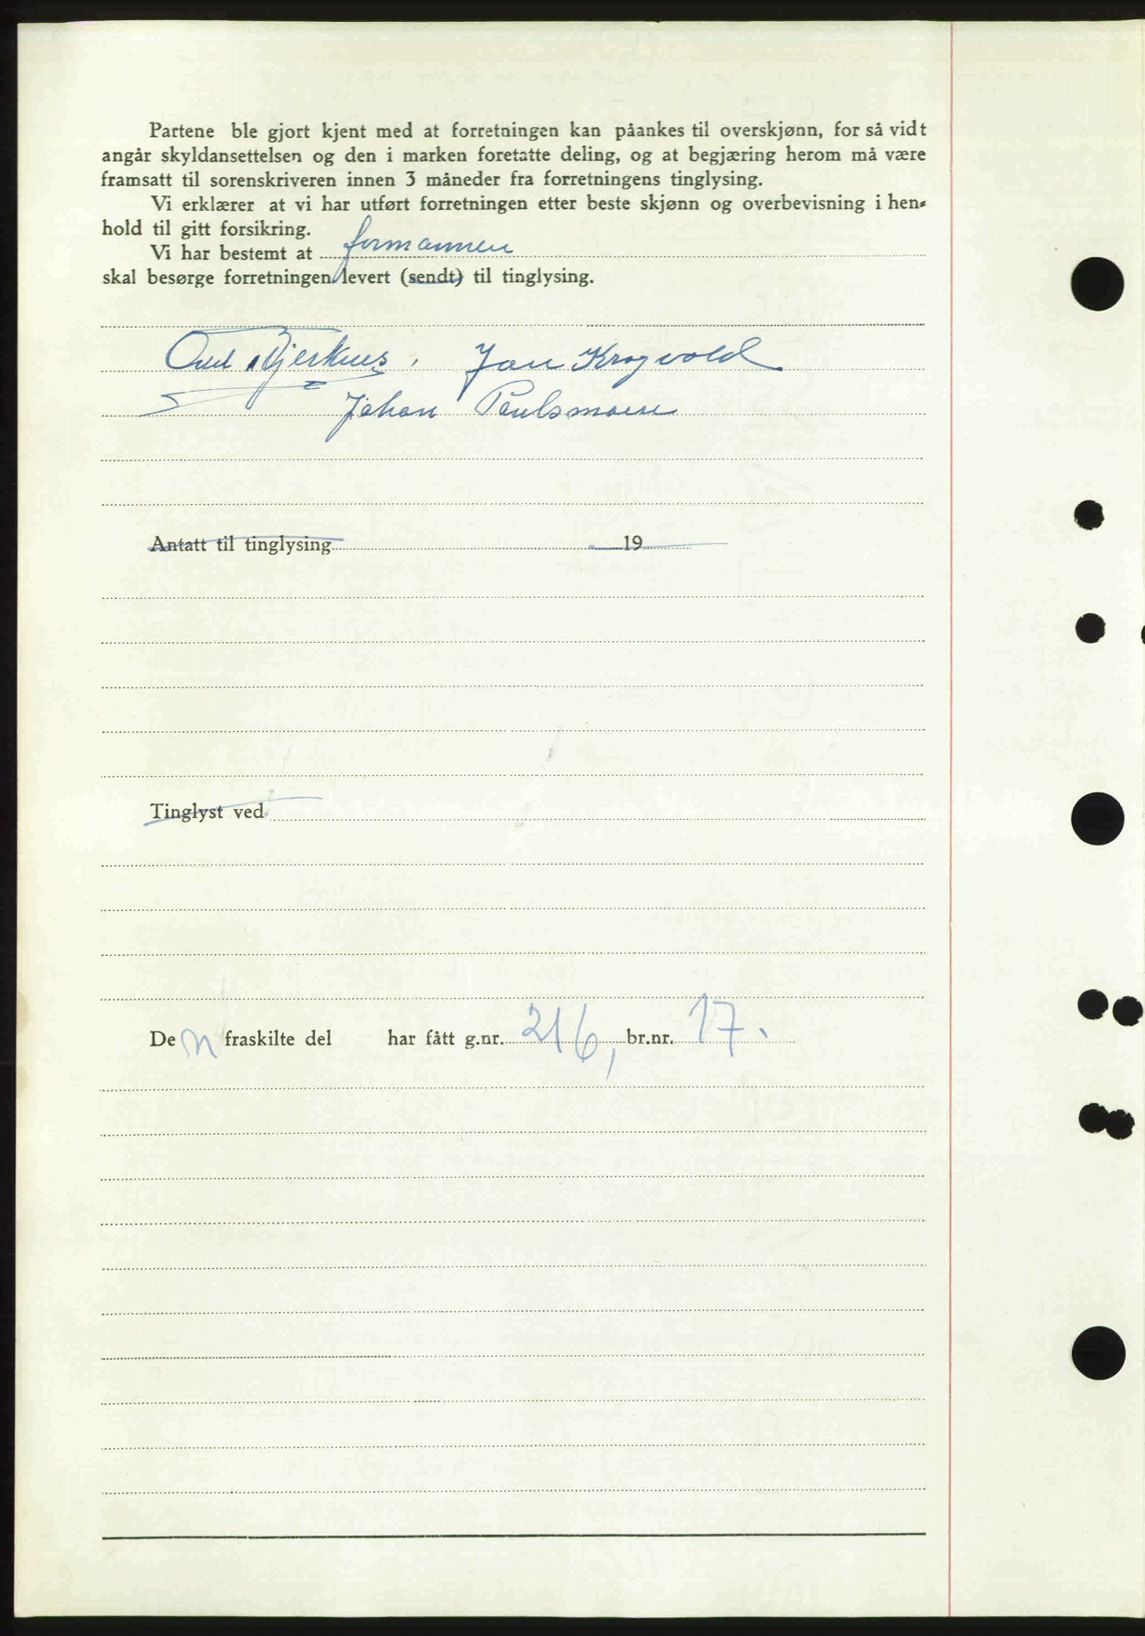 Partene ble gjort kjent med at forretningen kan påankes til overskjønn, for så vidt
angår skyldansettelsen og den i marken foretatte deling, og at begjæring herom må være
framsatt til sorenskriveren innen 3 måneder fra forretningens tinglysing.
Vi erklærer at vi har utført forretningen etter beste skjønn og overbevisning i hen-
hold til gitt forsikring.
Vi har bestemt at formannen
skal besørge forretningen levert (sendt) til tinglysing.
Jan Krogvold
Johan Paulsmoen
Antatt til tinglysing 19
Tinglyst ved
De n fraskilte del har fått g.nr. 216, br.nr. 17.